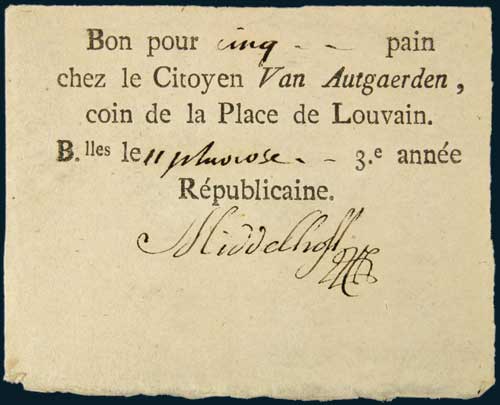 Bon pour cinq - - pain
chez le Citoyen Van Autgaerden,
coin de la Place de Louvain.
B.lles le 11 pluviose. - 3.e année
Républicaine.
Middelhoff